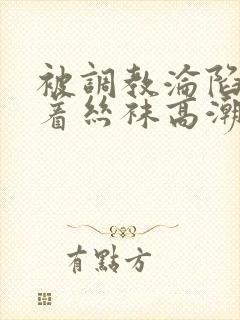 被調教淪陷
着絲袜高潮
有點方